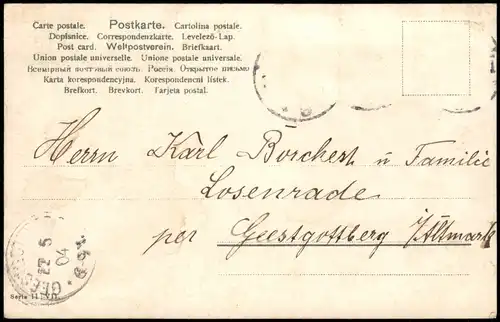 Carte postale. Postkarte. Cartolina postale.
Dopisnice. Correspondenzkarte. Levelező-Lap.
Post card. Weltpostverein. Briefkaart.
Union postale universelle. Unione postale universale.
Всемірный почтовый союзъ. Россія. Открытое письмо
Karta korespondencyjna. Korespondenční lístek.
Brefkort. Brevkort. Tarjeta postal.
Herrn Karl Borchert u Familie
Losenrade
per Geestgottberg /Altmark
22 5
04
Serie